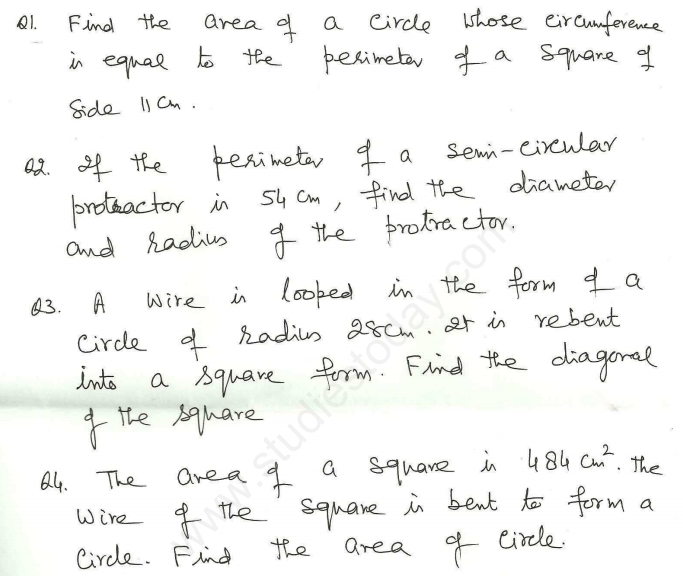 Q1. Find the area of a circle whose circumference
is equal to the perimeter of a square of
side 11 cm.
Q2. If the perimeter of a semi-circular
protractor is 54 cm, find the diameter
and radius of the protractor.
Q3. A wire is looped in the form of a
circle of radius 28cm. It is rebent
into a square form. Find the diagonal
of the square
Q4. The area of a square is 484 cm². The
wire of the square is bent to form a
circle. Find the area of circle.
www.studiestoday.com